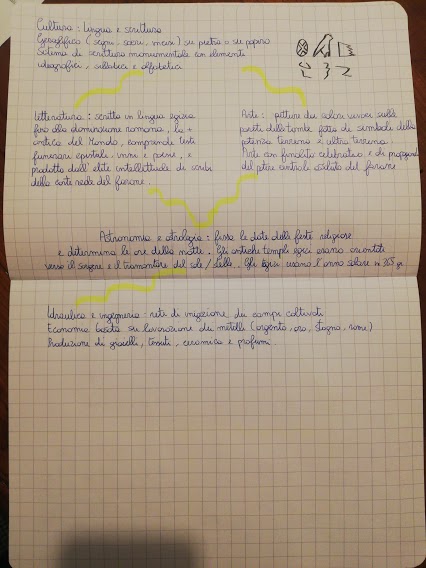 Cultura : Lingua e scrittura
Geroglifico ( segni sacri incisi ) su pietra o su papiro
Sistema di scrittura monumentale con elementi
ideografici , sillabici e alfabetici
Letteratura : scritta in lingua egizia
fino alla dominazione romana , la +
antica del Mondo , comprende testi
funerari epistole , inni e poesie , e
prodotto dall' elite intellettuale di scribi
della corte reale del faraone .
Arte : pitture da colori vivaci sulla
pareti delle tombe fatta di simboli della
potenza terrena e ultra terrena .
Arte con finalità celebrativa e di propaganda
del potere assoluto del faraone
Astronomia e astrologia : fissa le date delle feste religiose
e determina le ore della notte . Gli antichi templi egizi erano orientati
verso il sorgere e il tramontare del sole / stelle . Gli egizi usano l'anno solare di 365 gg.
Idraulica e ingegneria : reti di irrigazione dei campi coltivati
Economia basata su lavorazione dei metalli ( argento , oro , stagno , rame )
Produzione di gioielli , tessuti , ceramica e profumi .